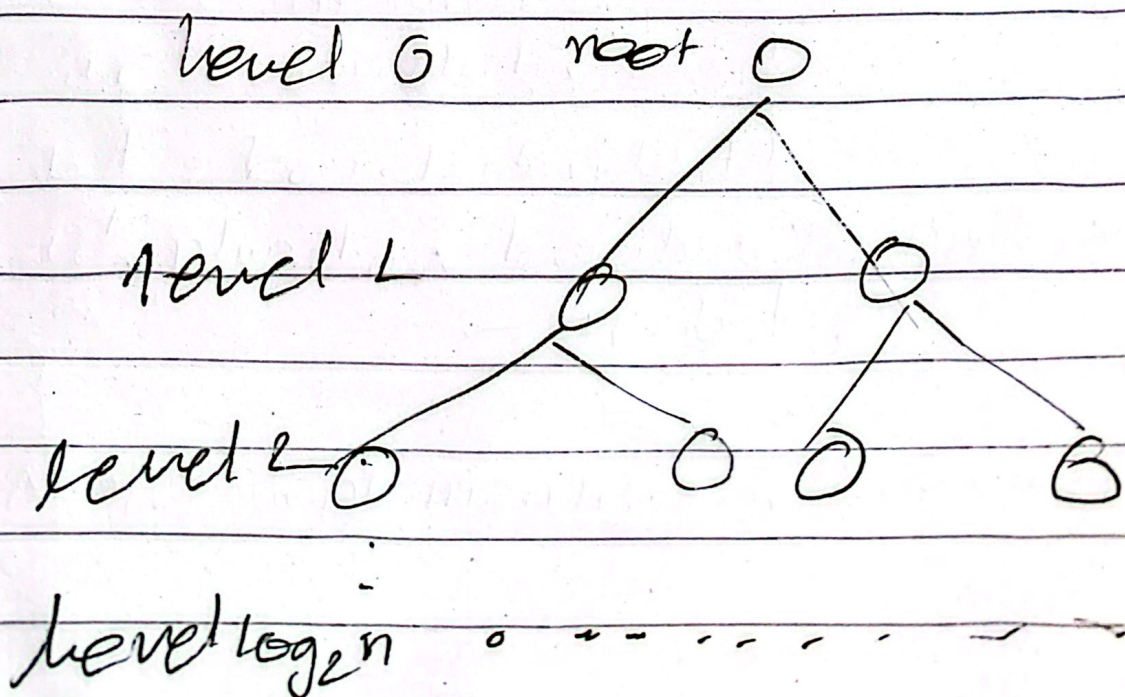 Level 0 root
Level 1
Level 2
Level log₂n